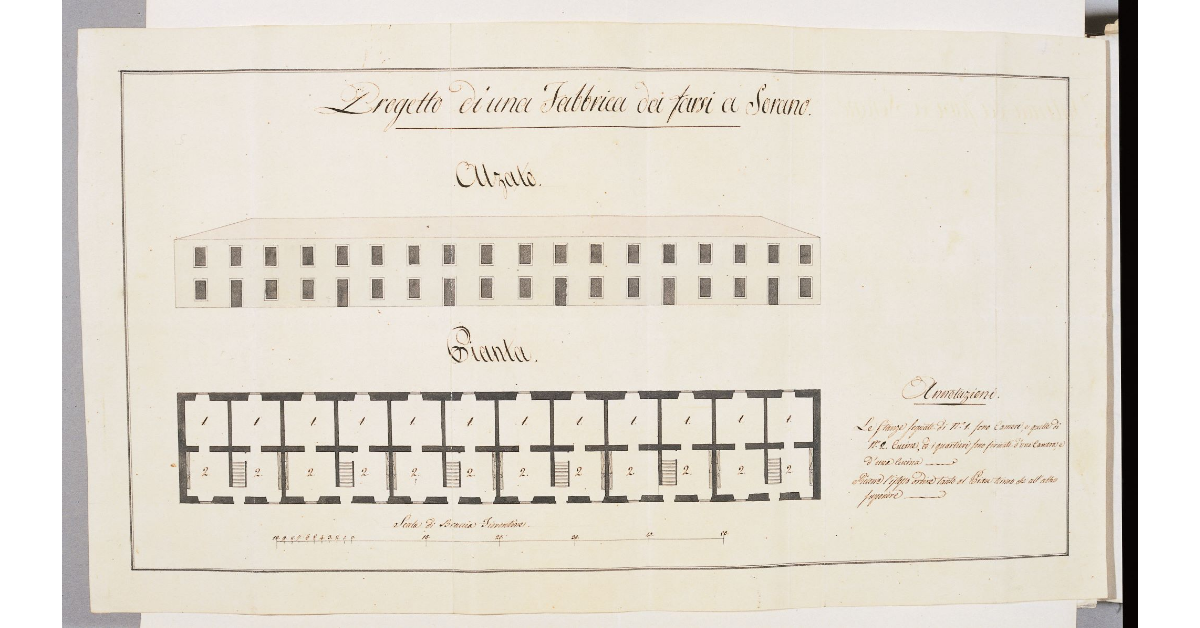 Progetto d'una Fabbrica da farsi a Serano.
Alzato.
Pianta.
1 1 1 1 1 1 1 1 1 1 1 1
2 2 2 2 2 2 2 2 2 2 2 2
Annotazioni.
Le Stanze segnate di N.° 1. sono Camere, e quelle di
N.° 2. Cucine, ed i quartieri sono formati d'una Camera, e
d'una Cucina
l'istesso ordine tanto al Pian terreno che all'altro
superiore
Scala di Braccia Fiorentine.
10 9 8 7 6 5 4 3 2 1
10 20 30 40 50